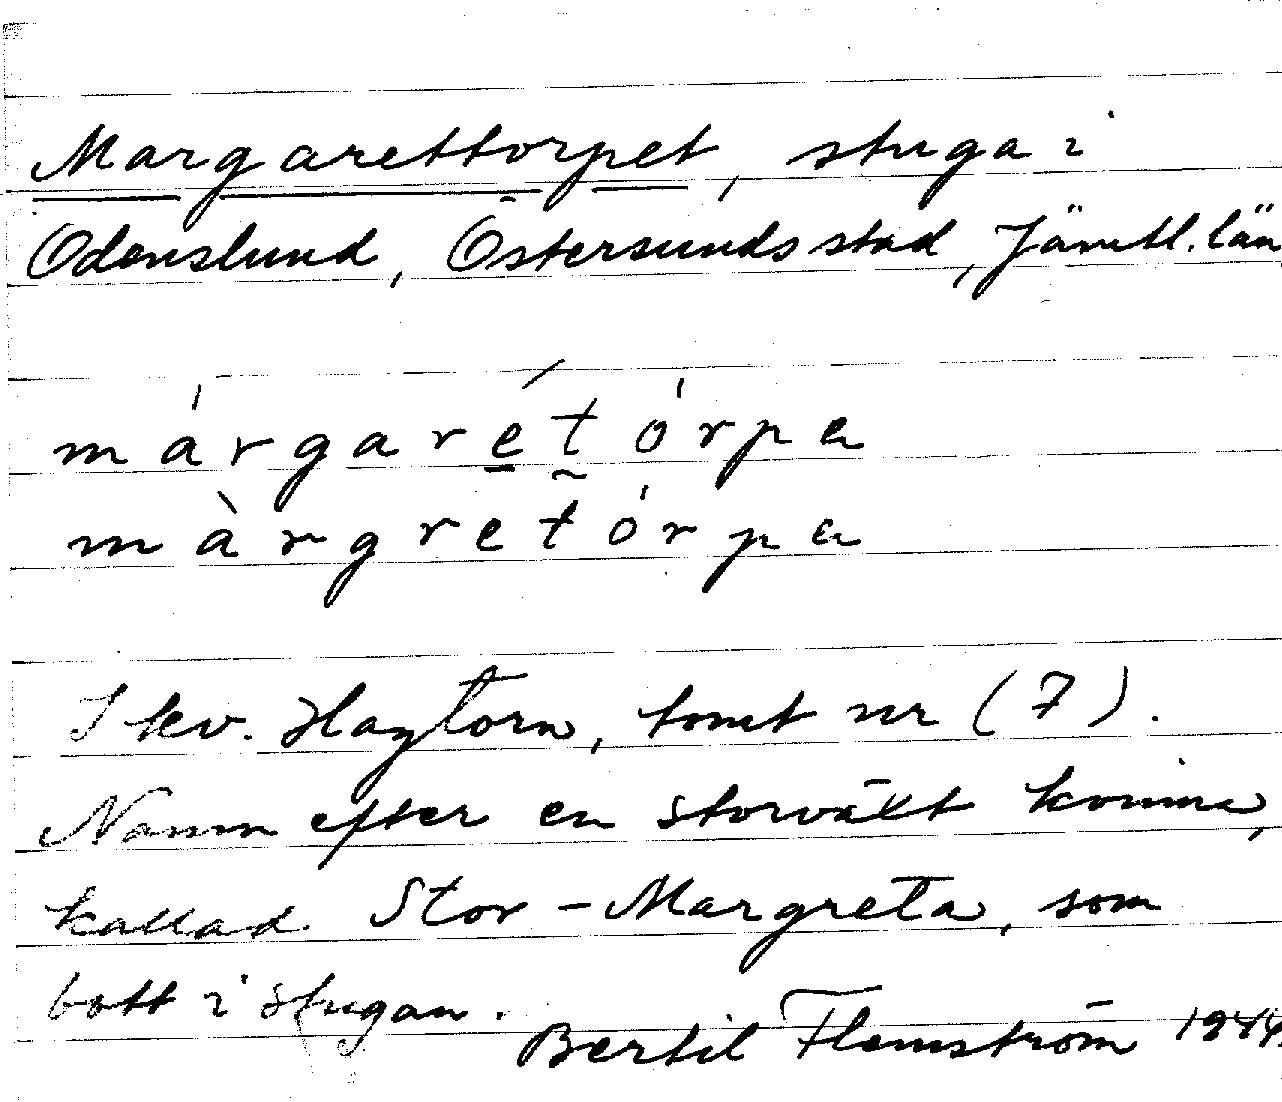 Margarettorpet, stuga i
Odenslund, Östersunds stad, Jämtl. län
márgarétórpa
màrgretórpa
I kv. Hagtorn, tomt nr (7).
Namn efter en storväxt kvinna,
kallad Stor-Margreta, som
bott i stugan.
Bertil Flemström 1944.